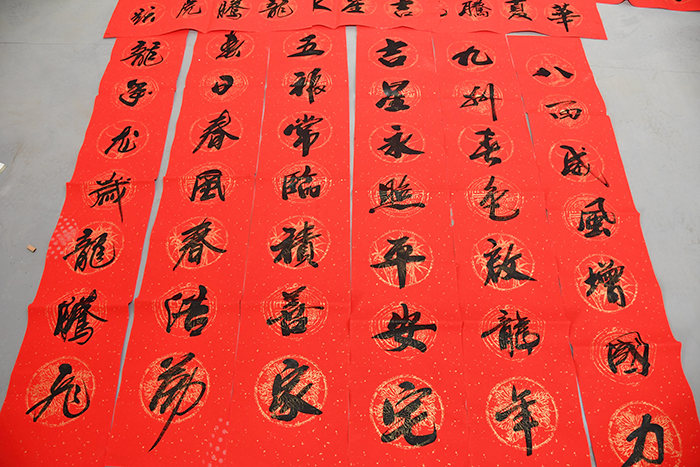 華夏騰
吉星
龍騰虎躍
八面威風增國力
九州春色啟龍年
吉星永照平安宅
五福常臨積善家
春日春風春浩荡
龍年龙歲龍騰飞